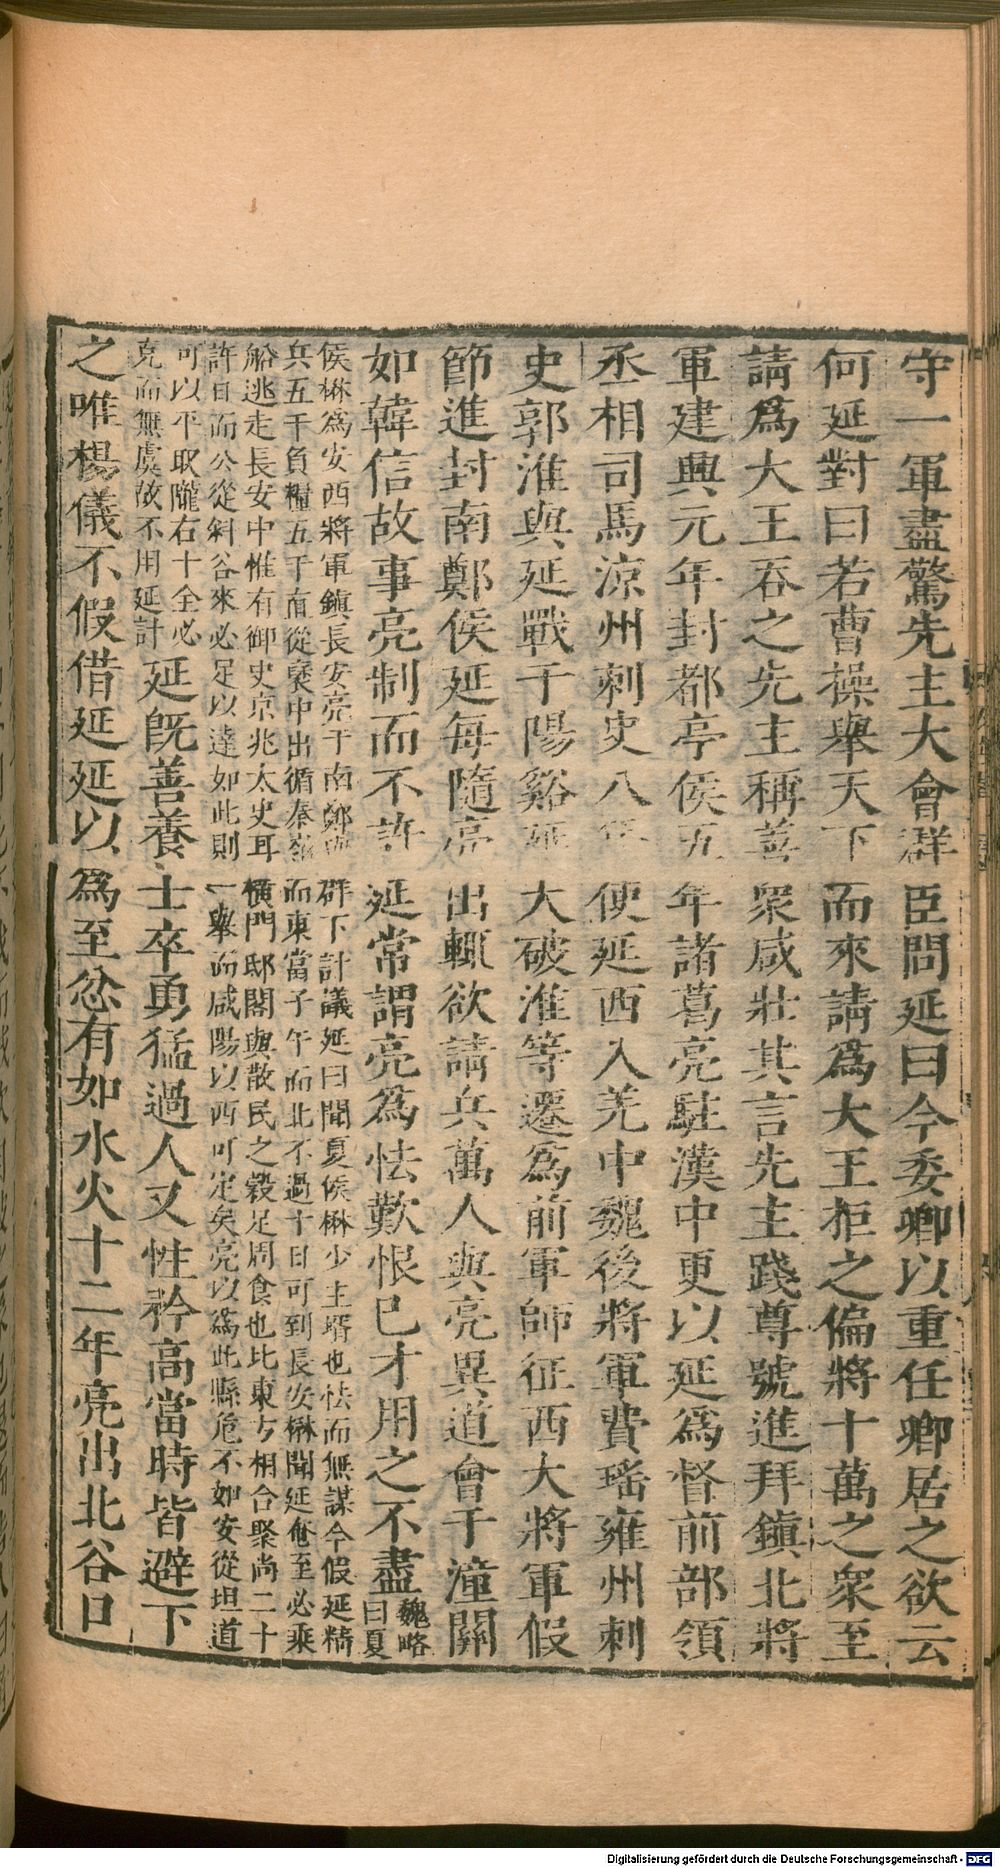 守一軍盡驚先主大會群臣問延曰今委卿以重任卿居之欲云
何延對曰若曹操舉天下而來請爲大王拒之偏將十萬之衆至
請爲大王吞之先主稱善衆咸壯其言先主踐尊號進拜鎮北將
軍建興元年封都亭侯五年諸葛亮駐漢中更以延爲督前部領
丞相司馬涼州刺史八年使延西入羌中魏後將軍費瑤雍州刺
史郭淮與延戰于陽谿延大破淮等遷爲前軍師征西大將軍假
節進封南鄭侯延每隨亮出輒欲請兵萬人與亮異道會于潼關
如韓信故事亮制而不許延常謂亮爲怯歎恨已才用之不盡魏略
曰夏
侯楙爲安西將軍鎮長安亮于南鄭與群下計議延曰聞夏侯楙少主壻也怯而無謀今假延精
兵五千負糧五千直從襃中出循秦嶺而東當子午而北不過十日可到長安楙聞延奄至必乘
船逃走長安中惟有御史京兆太史耳橫門邸閣與散民之穀足周食也比東方相合聚尚二十
許日而公從斜谷來必足以達如此則一舉而咸陽以西可定矣亮以爲此縣危不如安從坦道
可以平取隴右十全必
克而無虞故不用延計
延旣善養士卒勇猛過人又性矜高當時皆避下
之唯楊儀不假借延延以爲至忿有如水火十二年亮出北谷口
Digitalisierung gefördert durch die Deutsche Forschungsgemeinschaft - DFG